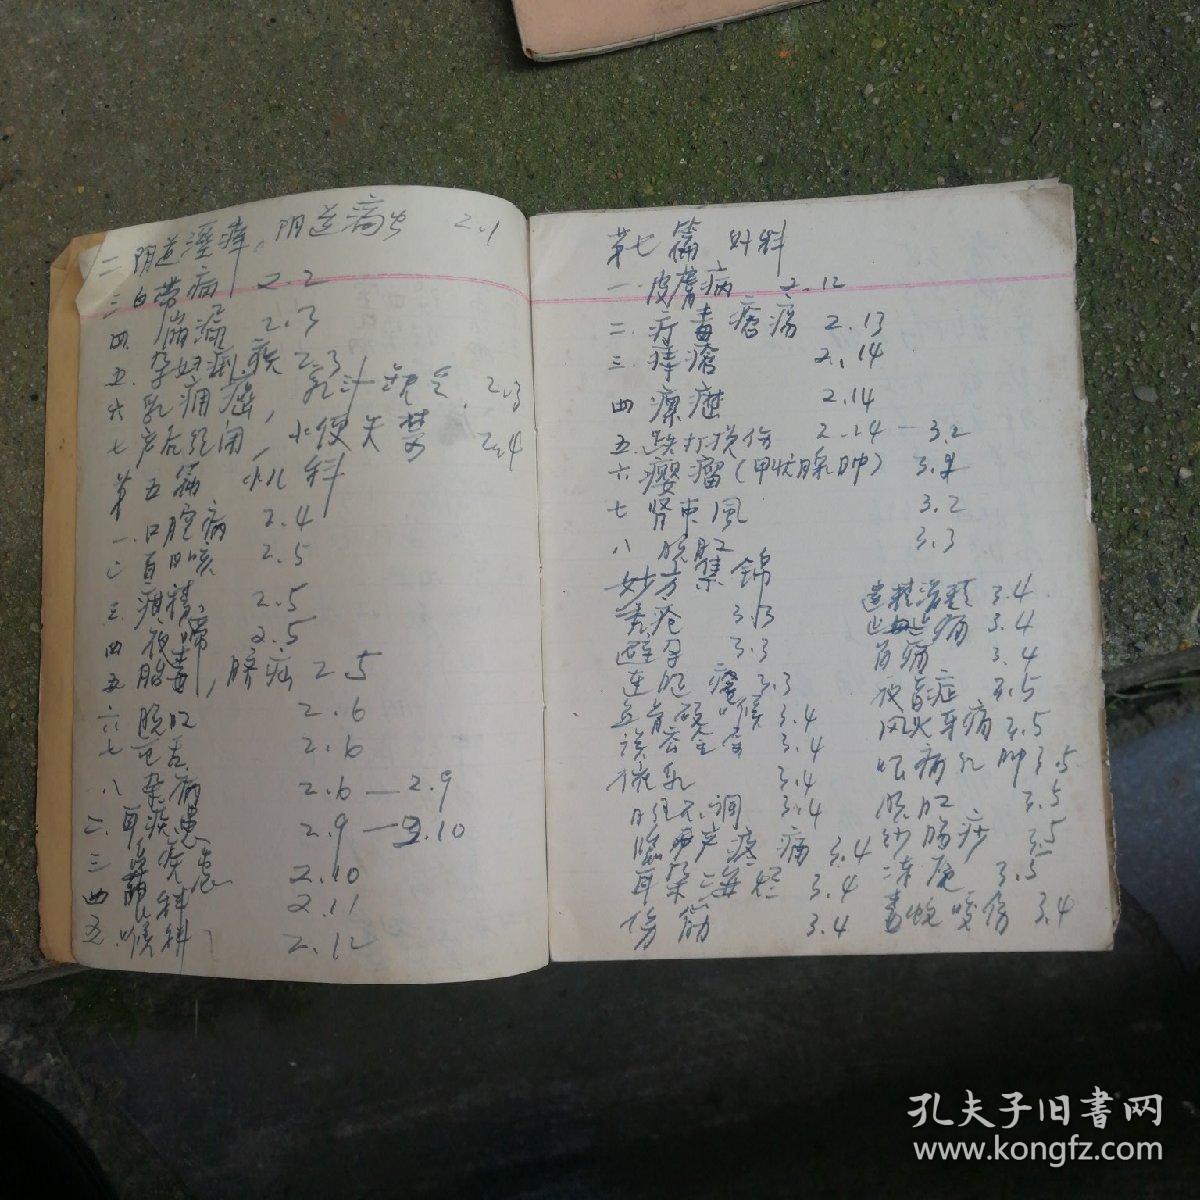 二 阴道湿痒，阴道滴虫 2.1
三 白带病 2.2
四 崩漏 2.3
五 孕妇 2.3
六 乳痈癌，乳汁缺乏 2.3
七 产后经闭，小便失禁 2.4
第五篇 小儿科
一 口腔病 2.4
二 百日咳 2.5
三 疳积 2.5
四 夜啼 2.5
五 胎毒，脐疝 2.5
六 脱肛 2.6
七 2.6
八 杂病 2.6—2.9
二 耳疾患 2.9—2.10
三 2.10
四 眼科 2.11
五 喉科 2.12
第七篇 外科
一 皮膚病 2.12
二 疔毒瘡瘍 2.13
三 痔瘡 2.14
四 瘰癧 2.14
五 跌打损伤 2.14—3.2
六 瘿瘤(甲状腺肿) 3.2
七 肾束風 3.2
八 脱肛 3.3
妙方集锦
秃疮 3.3
避孕 3.3
3.3
3.4
3.4
3.4
月经不调 3.4
3.4
3.4
伤筋 3.4
3.4
止血止痛 3.4
3.4
夜盲症 3.5
风火牙痛 3.5
3.5
脱肛 3.5
绞肠痧 3.5
冻疮 3.5
毒蛇咬伤 3.4
孔夫子旧書网
www.kongfz.com